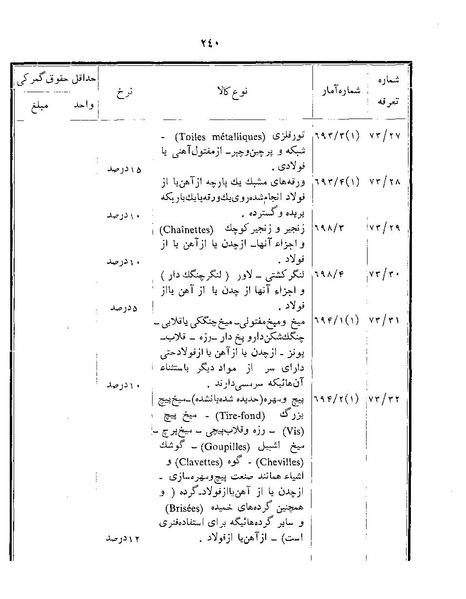 ۲۴۰
شماره تعرفه شماره آمار نوع کالا نرخ حداقل حقوق گمرکی واحد مبلغ
۷۳/۲۷ ۶۹۳/۳(۱) تور فلزی (Toiles métalliques) -
شبکه و پرچین وچپر- ازمفتول آهنی یا
فولادی . ۱۵درصد
۷۳/۲۸ ۶۹۳/۴(۱) ورقه‌های مشبك يك پارچه ازآهن‌یا از
فولاد انجام‌شده‌روی‌يك‌ورقه‌یايك‌باریکه
بریده و گسترده . ۱۰درصد
۷۳/۲۹ ۶۹۸/۳ زنجیر و زنجیر کوچك (Chaînettes)
و اجزاء آنها- ازچدن یا ازآهن یا از
فولاد . ۱۰درصد
۷۳/۳۰ ۶۹۸/۴ لنگرکشتی - لاور ( لنگرچنگك دار )
و اجزاء آنها ازچدن یا از آهن یااز
فولاد . ۵درصد
۷۳/۳۱ ۶۹۴/۱(۱) میخ ومیخ‌مفتولی- میخ‌چنگکی یاقلابی-
چنگك‌شکن‌دارو پخ دار - رزه - قلاب-
پونز - ازچدن یا ازآهن یا ازفولادحتی
دارای سر از مواد دیگر باستثناء
آن‌هائیکه سرمسی‌دارند . ۱۰درصد
۷۳/۳۲ ۶۹۴/۲(۱) پیچ ومهره(حدیده شده‌یانشده)-میخ‌پیچ
بزرگ (Tire-fond) - میخ پیچ
(Vis) - رزه وقلاب‌پیچی - میخ‌پرچ -
میخ اشپیل (Goupilles) - گوشك
(Chevilles) - گوه (Clavettes) و
اشیاء همانند صنعت پیچ‌ومهره‌سازی -
ازچدن یا از آهن‌یاازفولاد. گرده ( و
همچنین گرده‌های خمیده (Brisées)
و سایر گرده‌هائیکه برای استفاده‌فنری
است) - ازآهن‌یا ازفولاد . ۱۲درصد